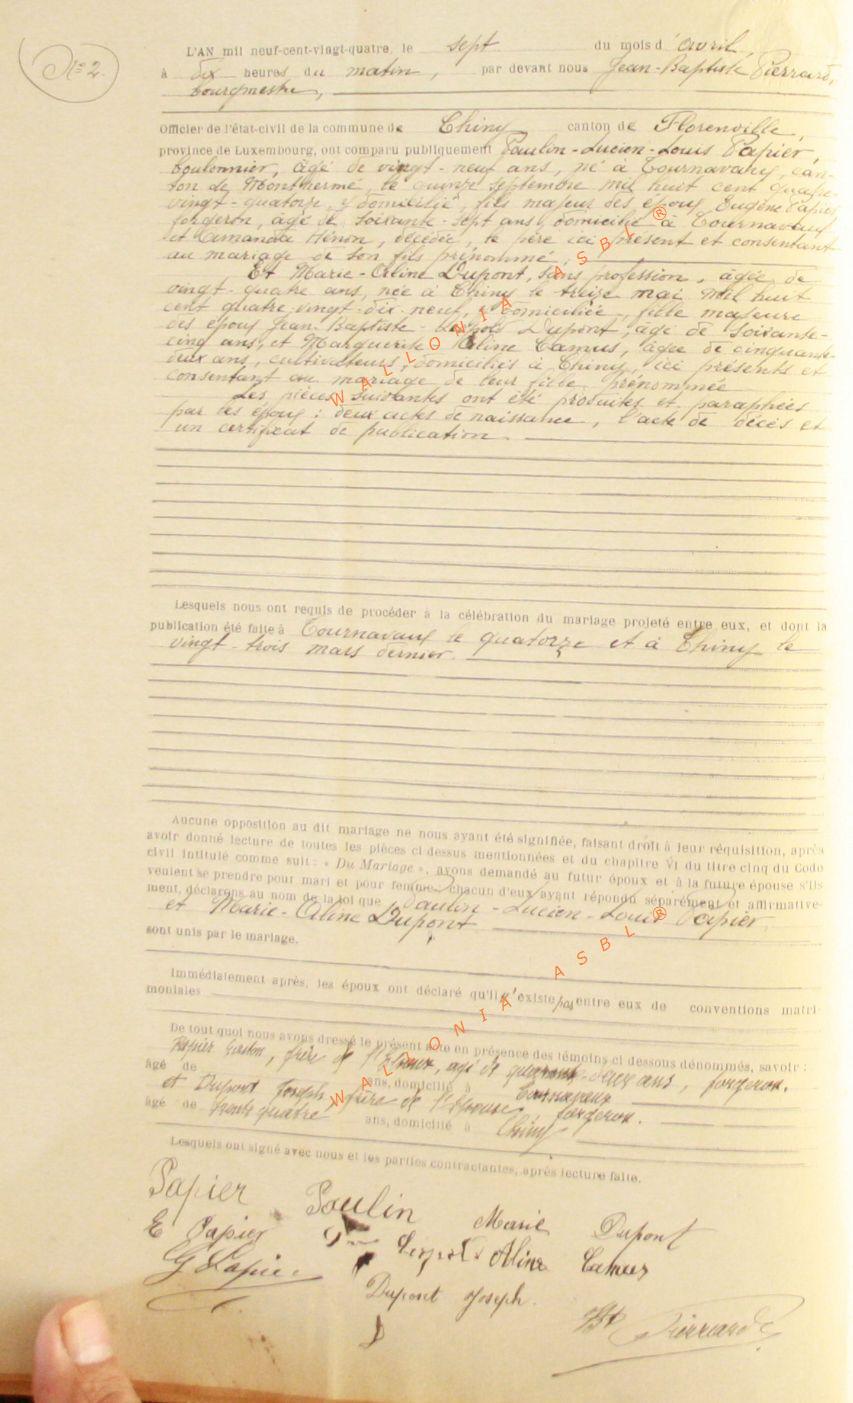 N° 2.
L'AN mil neuf-cent-vingt-quatre, le sept du mois d'avril,
à dix heures du matin, par devant nous Jean-Baptiste Pierrard,
bourgmestre,
Officier de l'état-civil de la commune de Chiny canton de Florenville,
province de Luxembourg, ont comparu publiquement Paulin-Lucien-Louis Papier,
boulonnier, âgé de vingt-neuf ans, né à Tournavaux, can-
ton de Monthermé, le quinze septembre mil huit cent quatre-
vingt-quatorze, y domicilié, fils majeur des époux Eugène Papier
forgeron, âgé de soixante-sept ans, domicilié à Tournavaux
et Amanda Hénon, décédée, le père ici présent et consentant
au mariage de son fils prénommé,
Et Marie-Céline Dupont, sans profession, âgée de
vingt-quatre ans, née à Chiny le treize mai mil huit
cent quatre-vingt-dix-neuf, y domiciliée, fille majeure
des époux Jean-Baptiste Dupont, âgé de soixante-
cinq ans, et Marguerite Céline Camus, âgée de cinquante-
deux ans, cultivateurs, domiciliés à Chiny, ici présents et
consentant au mariage de leur fille prénommée
Les pièces suivantes ont été produites et paraphées
par les époux : deux actes de naissance, l'acte de décès et
un certificat de publication.
Lesquels nous ont requis de procéder à la célébration du mariage projeté entre eux, et dont la
publication été faite à Tournavaux le quatorze et à Chiny le
vingt-trois mars dernier.
Aucune opposition au dit mariage ne nous ayant été signifiée, faisant droit à leur réquisition, après
avoir donné lecture de toutes les pièces ci dessus mentionnées et du chapitre VI du titre cinq du Code
civil intitulé comme suit : « Du Mariage », avons demandé au futur époux et à la future épouse s'ils
veulent se prendre pour mari et pour femme, chacun d'eux ayant répondu séparément et affirmative-
ment, déclarons au nom de la loi que Paulin-Lucien-Louis Papier
et Marie-Céline Dupont
sont unis par le mariage.
Immédiatement après, les époux ont déclaré qu'il n'existe pas entre eux de conventions matri-
moniales
De tout quoi nous avons dressé le présent acte en présence des témoins ci dessous dénommés, savoir :
Papier Gaston, frère de l'Epoux, agé de quarante-deux ans, forgeron.
âgé de ans, domicilié à Tournavaux
et Dupont Joseph, frère de l'Epouse, forgeron.
âgé de trente quatre ans, domicilié à Chiny
Lesquels ont signé avec nous et les parties contractantes, après lecture faite.
Papier Paulin
Marie Dupont
E Papier
Aline Camus
G Papier
Dupont Joseph.
JB Pierrard
WALLONIA ASBL®
WALLONIA ASBL®